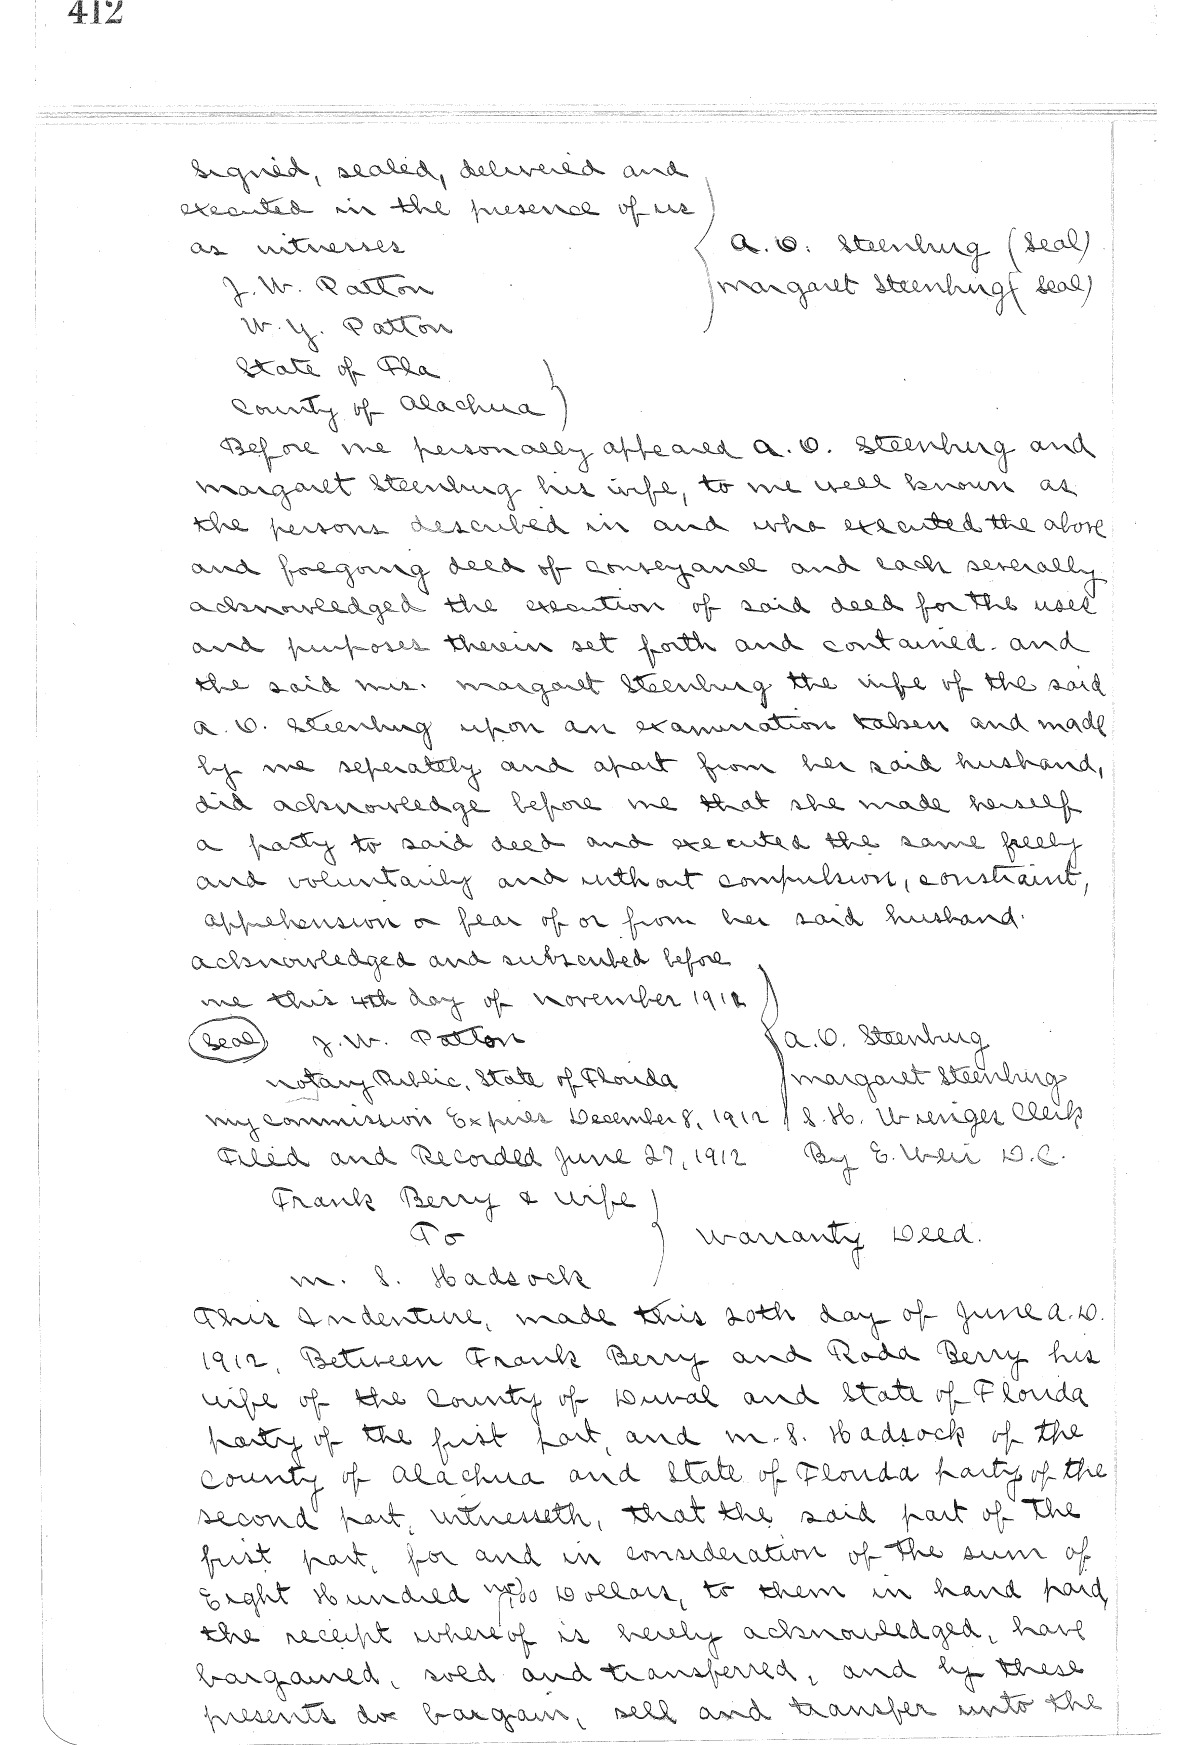 412
Signed, sealed, delivered and
executed in the presence of us
as witnesses
A. O. Steenburg (Seal)
J. W. Patton
Margaret Steenburg (Seal)
W. Y. Patton
State of Fla
County of Alachua
Before me personally appeared A. O. Steenburg and
Margaret Steenburg his wife, to me well known as
the persons described in and who executed the above
and foregoing deed of conveyance and each severally
acknowledged the execution of said deed for the uses
and purposes therein set forth and contained. and
the said Mrs. Margaret Steenburg the wife of the said
A. O. Steenburg upon an examination taken and made
by me seperately and apart from her said husband,
did acknowledge before me that she made herself
a party to said deed and executed the same freely
and voluntarily and without compulsion, constraint,
apprehension or fear of or from her said husband.
acknowledged and subscribed before
me this 4th day of November 1912
(Seal) J. W. Patton A. O. Steenburg
Notary Public, State of Florida Margaret Steenburg
My Commission Expires December 8, 1912 S. H. Wienges Clerk
Filed and Recorded June 27, 1912 By E. Weir D.C.
Frank Berry & Wife
To Warranty Deed.
M. S. Hadsock
This Indenture, made this 20th day of June A.D.
1912, Between Frank Berry and Roda Berry his
wife of the County of Duval and State of Florida
party of the first part, and M. S. Hadsock of the
County of Alachua and State of Florida party of the
second part, witnesseth, that the said part of the
first part, for and in consideration of the sum of
Eight Hundred no/100 Dollars, to them in hand paid,
the receipt whereof is hereby acknowledged, have
bargained, sold and transferred, and by these
presents do bargain, sell and transfer unto the